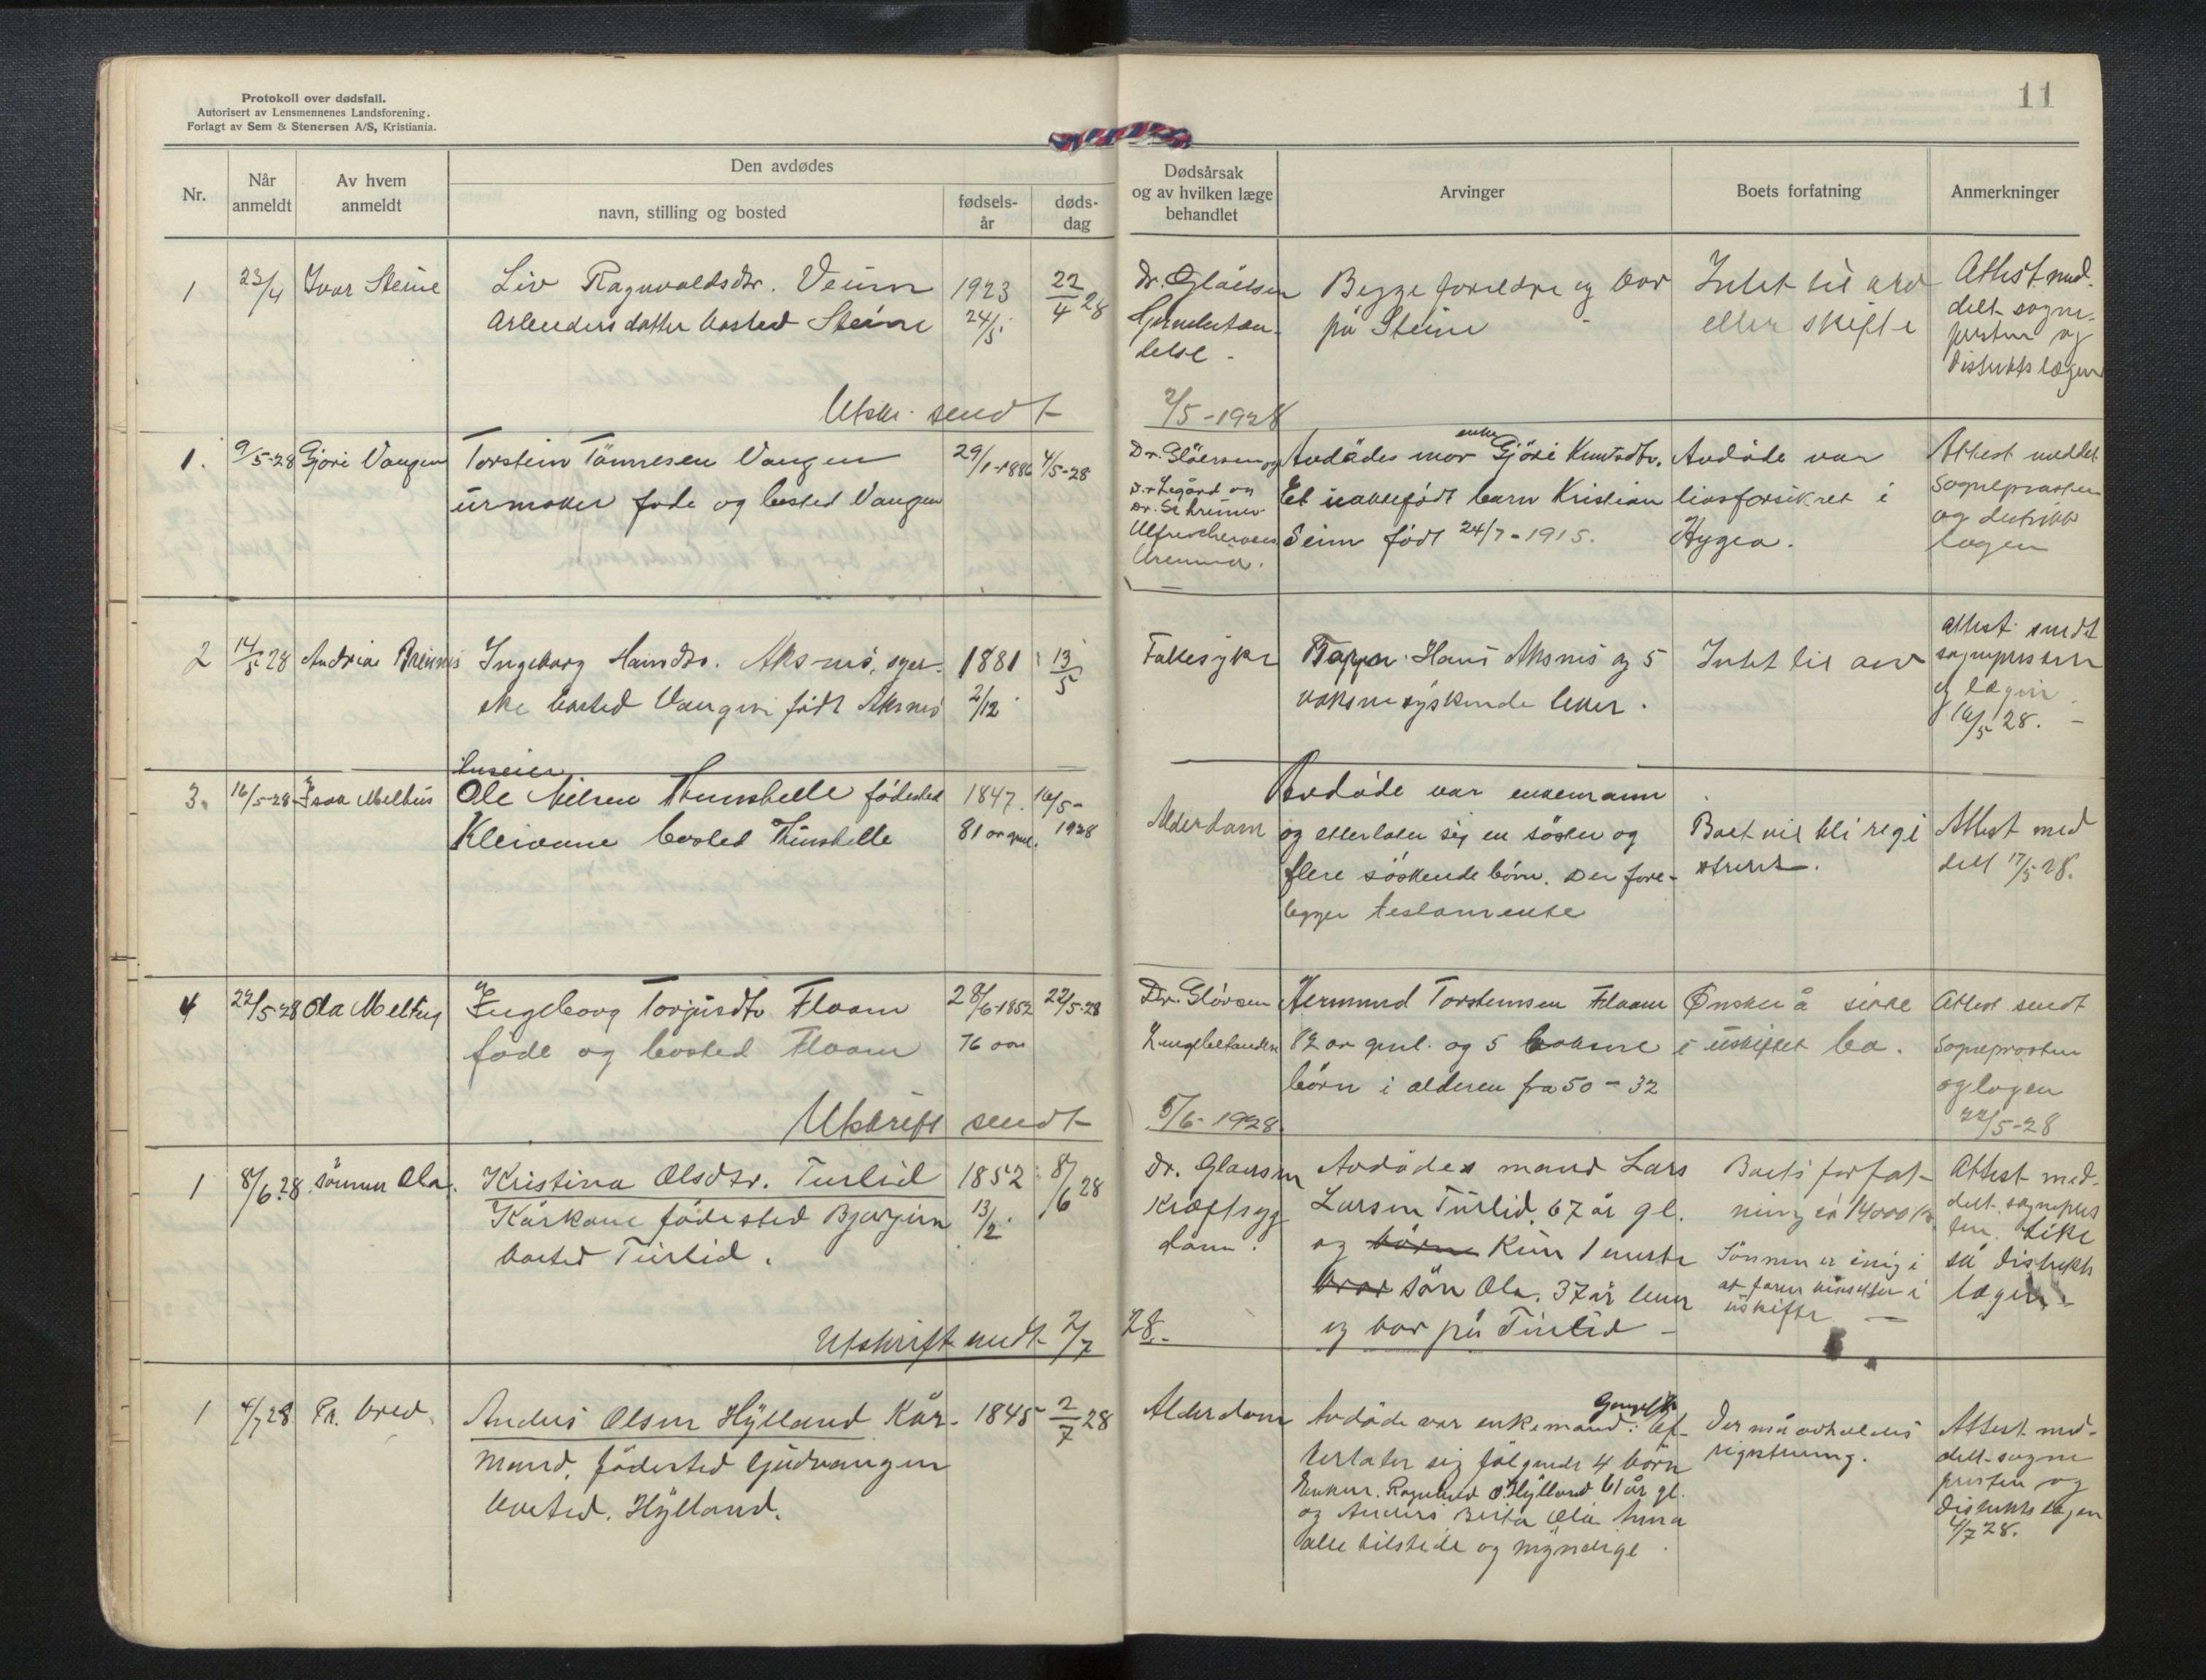 Protokoll over dødsfall.
Autorisert av Lensmennenes Landsforening.
Forlagt av Sem & Stenersen A/S, Kristiania.
11
Nr.
Når anmeldt
Av hvem anmeldt
Den avdødes
navn, stilling og bosted
fødsels-år
døds-dag
Dødsårsak og av hvilken læge behandlet
Arvinger
Boets forfatning
Anmerkninger
1
23/4
Ivar Steine
Liv Ragnvaldsdtr. Veum
Arbeidersdatter bosted Steine
1923
24/5
22/4 28
Dr. Gløersen
Begge foreldre og bor
på Steine
Intet til arv
eller skifte
Attest med-
delt sogne-
presten og
distriktslægen
Utskr. sendt
2/5-1928
1.
9/5-28
Gjøri Vangen
Torstein Tønnesen Vangen
urmaker føde og bosted Vangen
29/1-1886
4/5-28
Dr. Gløersen og
Dr. Schreiner
Uremia.
Avdødes mor enke Gjøri Knutsdtr.
Et uektefødt barn Kristian
Seim født 24/7-1915.
Avdøde var
livsforsikret i
Hygea.
Attest meddelt
Sogneprosten
og distrikts
lægen
2
14/5 28
Andreas Breines
Ingeborg Hansdtr. Aksnes, syer-
ske bosted Vangen født Aksnes
1881
2/12
13/5
Fallesyke
Pappa Hans Aksnes og 5
voksne syskende lever.
Intet til arv
attest sendt
sognepresten
og lægen
16/5 28. -
3.
16/5-28
Isak Melhus
huseier
Ole Nilsen Thunshelle fødested
Kleivane bosted Thunshelle
1847.
81 år gml.
16/5-
1928
Alderdom
Avdøde var enkemann
og etterlater sig en søster og
flere søskendebørn. Der fore-
legger testamente
Boet vil bli regi
strert.
Attest med
delt 17/5-28.
4
22/5-28
Ola Melhus
Ingeborg Torjusdtr Flaam
føde og bosted Flaam
28/6-1852
76 aar
22/5-28
Dr. Gløersen
Lungebetendelse
Hermund Torsteinsen Flaam
82 år gml. og 5 voksne
børn i alderen fra 50 - 32
Ønsker å sitte
i uskiftet bo.
Attest sendt
Sogneprosten
og lægen
22/5-28
Utskrift sendt
5/6-1928.
1
8/6 28
sønnen Ola.
Kristina Olsdtr. Turlid
Kårkone fødested Bjørgum
bosted Turlid.
1852
13/2
8/6 28
Dr. Gløersen
Kræftsyg
dom.
Avdødes mand Lars
Larsen Turlid, 67 år gl.
og børn kun 1 eneste
søn Ola. 37 år lever
og bor på Turlid -
Boets forfat-
ning er 14000 kr.
Sønnen er enig i
at faren hensitter i
uskifte. -
Attest med-
delt sognepres
ten. Like
så distrikts
lægen. -
Utskrift sendt 2/7
28.-
1
4/7 28
Pr. brev.
Anders Olsen Hylland Kår-
mand, fødested Gudvangen
bosted. Hylland.
1845
2/7 28
Alderdom
Avdøde var enkemand: Ef-
terlater sig følgende 4 børn
Enken. Ragnhild O. Hylland 61 år gl.
og Anders Brita Ola Anna
alle tilstede og myndige
Der må avholdes
registrering.
Attest med-
delt sogne
presten og
distriktslægen
4/7 28.